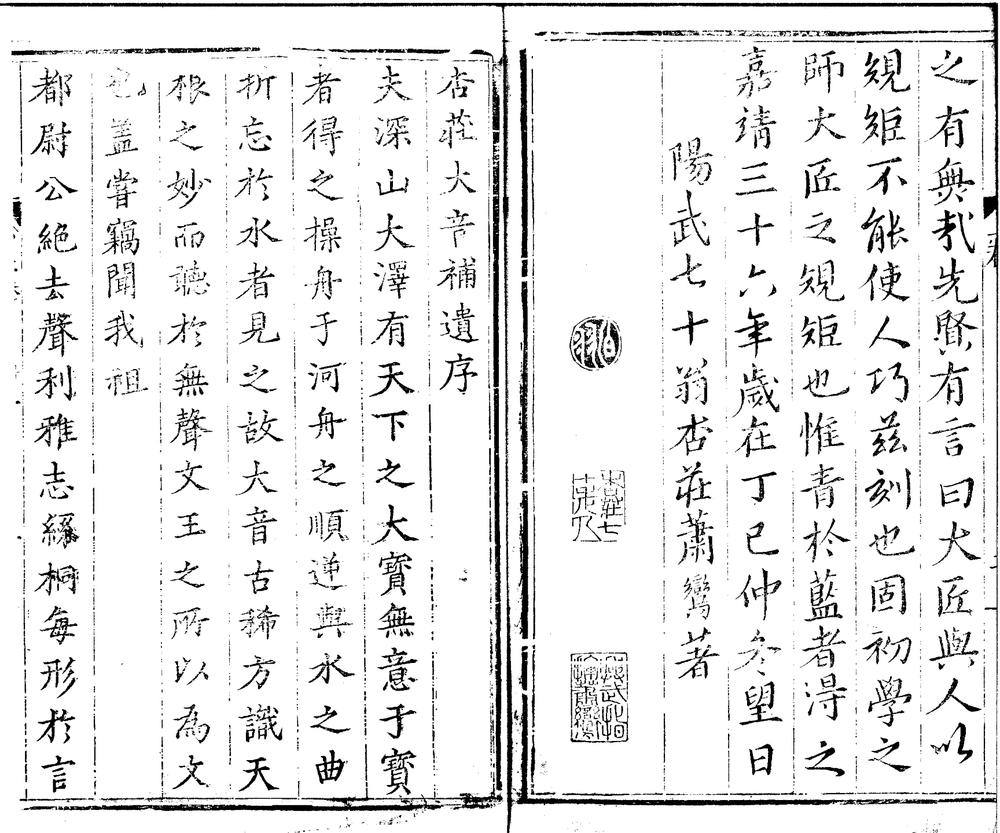 之有無哉先賢有言曰大匠與人以
規矩不能使人巧茲刻也固初學之
師大匠之規矩也惟青於藍者得之
嘉靖三十六年歲在丁巳仲冬望日
陽武七十翁杏莊蕭鸞著
杏莊大音補遺序
夫深山大澤有天下之大寶無意于寶
者得之操舟于河舟之順逆與水之曲
折忘於水者見之故大音古稀方識天
根之妙而聽於無聲文王之所以為文
也蓋嘗竊聞我祖
都尉公絕去聲利雅志絲桐每形於言